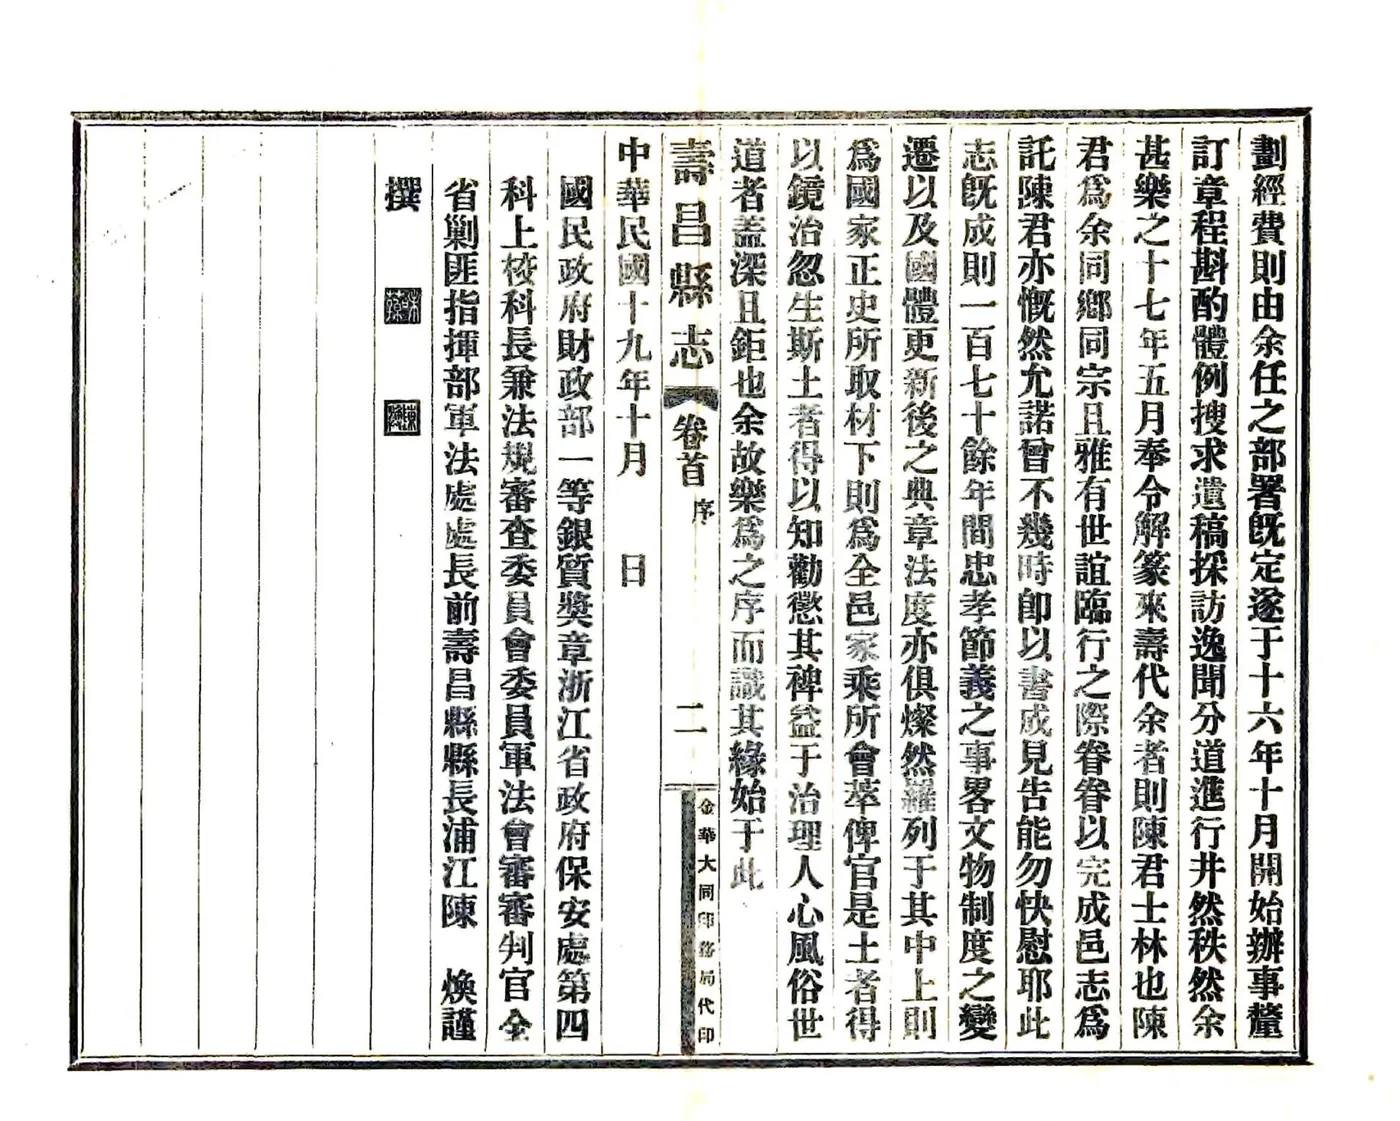 劃經費則由余任之部署旣定遂于十六年十月開始辦事釐
訂章程斟酌體例搜求遺稿採訪逸聞分道進行井然秩然余
甚樂之十七年五月奉令解篆來壽代余者則陳君士林也陳
君爲余同鄉同宗且雅有世誼臨行之際眷眷以完成邑志爲
託陳君亦慨然允諾曾不幾時卽以書成見告能勿快慰耶此
志旣成則一百七十餘年間忠孝節義之事畧文物制度之變
遷以及國體更新後之典章法度亦俱燦然羅列于其中上則
爲國家正史所取材下則爲全邑家乘所會萃俾官是土者得
以鏡治忽生斯土者得以知勸懲其裨益于治理人心風俗世
道者蓋深且鉅也余故樂爲之序而識其緣始于此
壽昌縣志 卷首 序 二 金華大同印務局代印
中華民國十九年十月 日
國民政府財政部一等銀質獎章浙江省政府保安處第四
科上校科長兼法規審查委員會委員軍法會審審判官全
省剿匪指揮部軍法處處長前壽昌縣縣長浦江陳 煥謹
撰